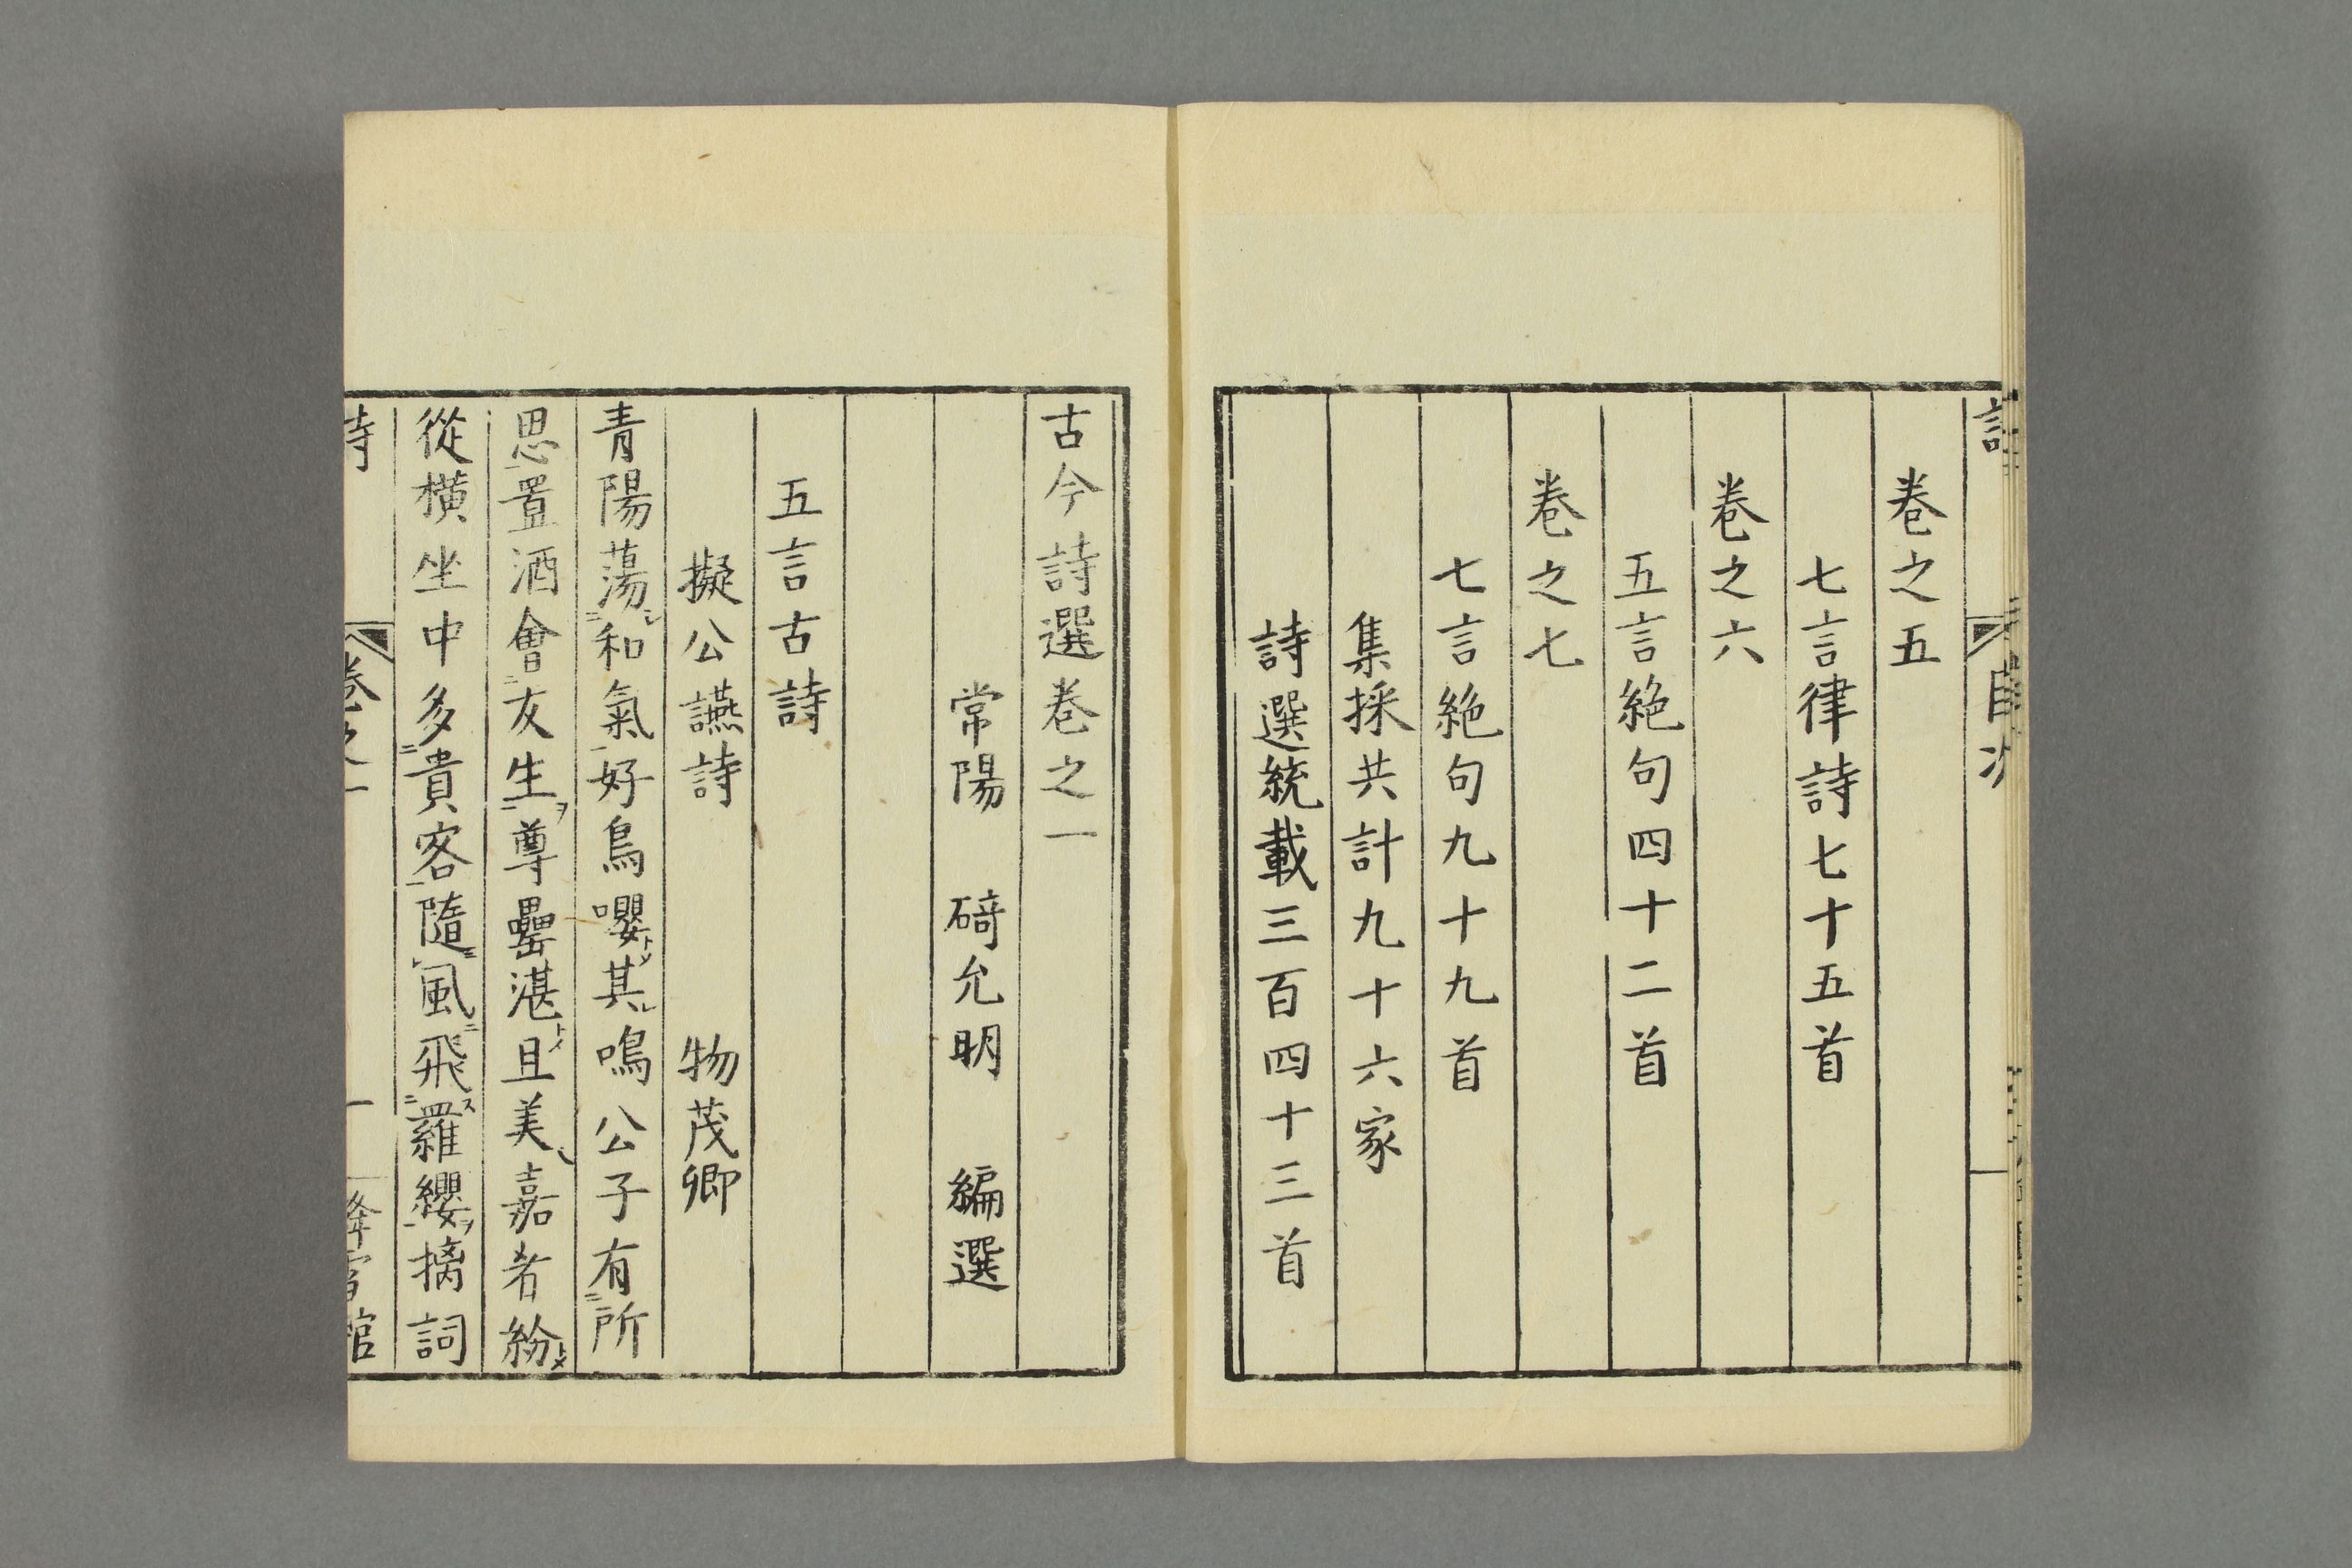 卷之五
七言律詩七十五首
卷之六
五言絶句四十二首
卷之七
七言絶句九十九首
集採共計九十六家
詩選統載三百四十三首
古今詩選卷之一
常陽 碕允明 編選
五言古詩
擬公讌詩 物茂卿
青陽蕩和氣好鳥嚶其鳴公子有所
思置酒會友生尊罍湛且美嘉者紛
從橫坐中多貴客隨風飛羅纓摛詞